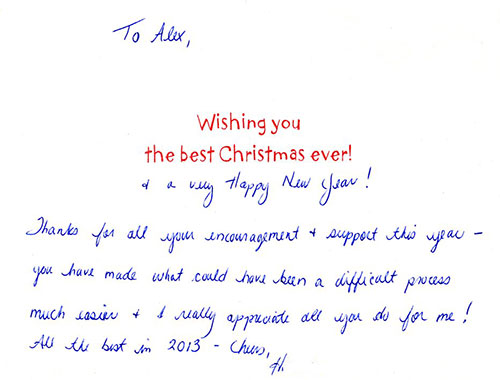 To Alex,
Wishing you
the best Christmas ever!
& a very Happy New Year!
Thanks for all your encouragement + support this year -
you have made what could have been a difficult process
much easier + I really appreciate all you do for me!
All the best in 2013 - Cheers,
H.